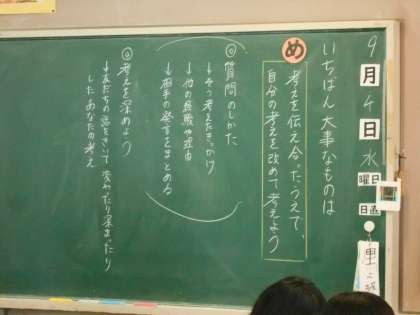 9月4日水曜日
日直
いちばん大事なものは
め
考えを伝え合ったうえで、
自分の考えを改めて考えよう
◎質問のしかた
↓そう考えたきっかけ
↓他の経験や理由
↓相手の発言をまとめる
◎考えを深めよう
↓友だちの話をきいて変わったり深まったり
したあなたの考え